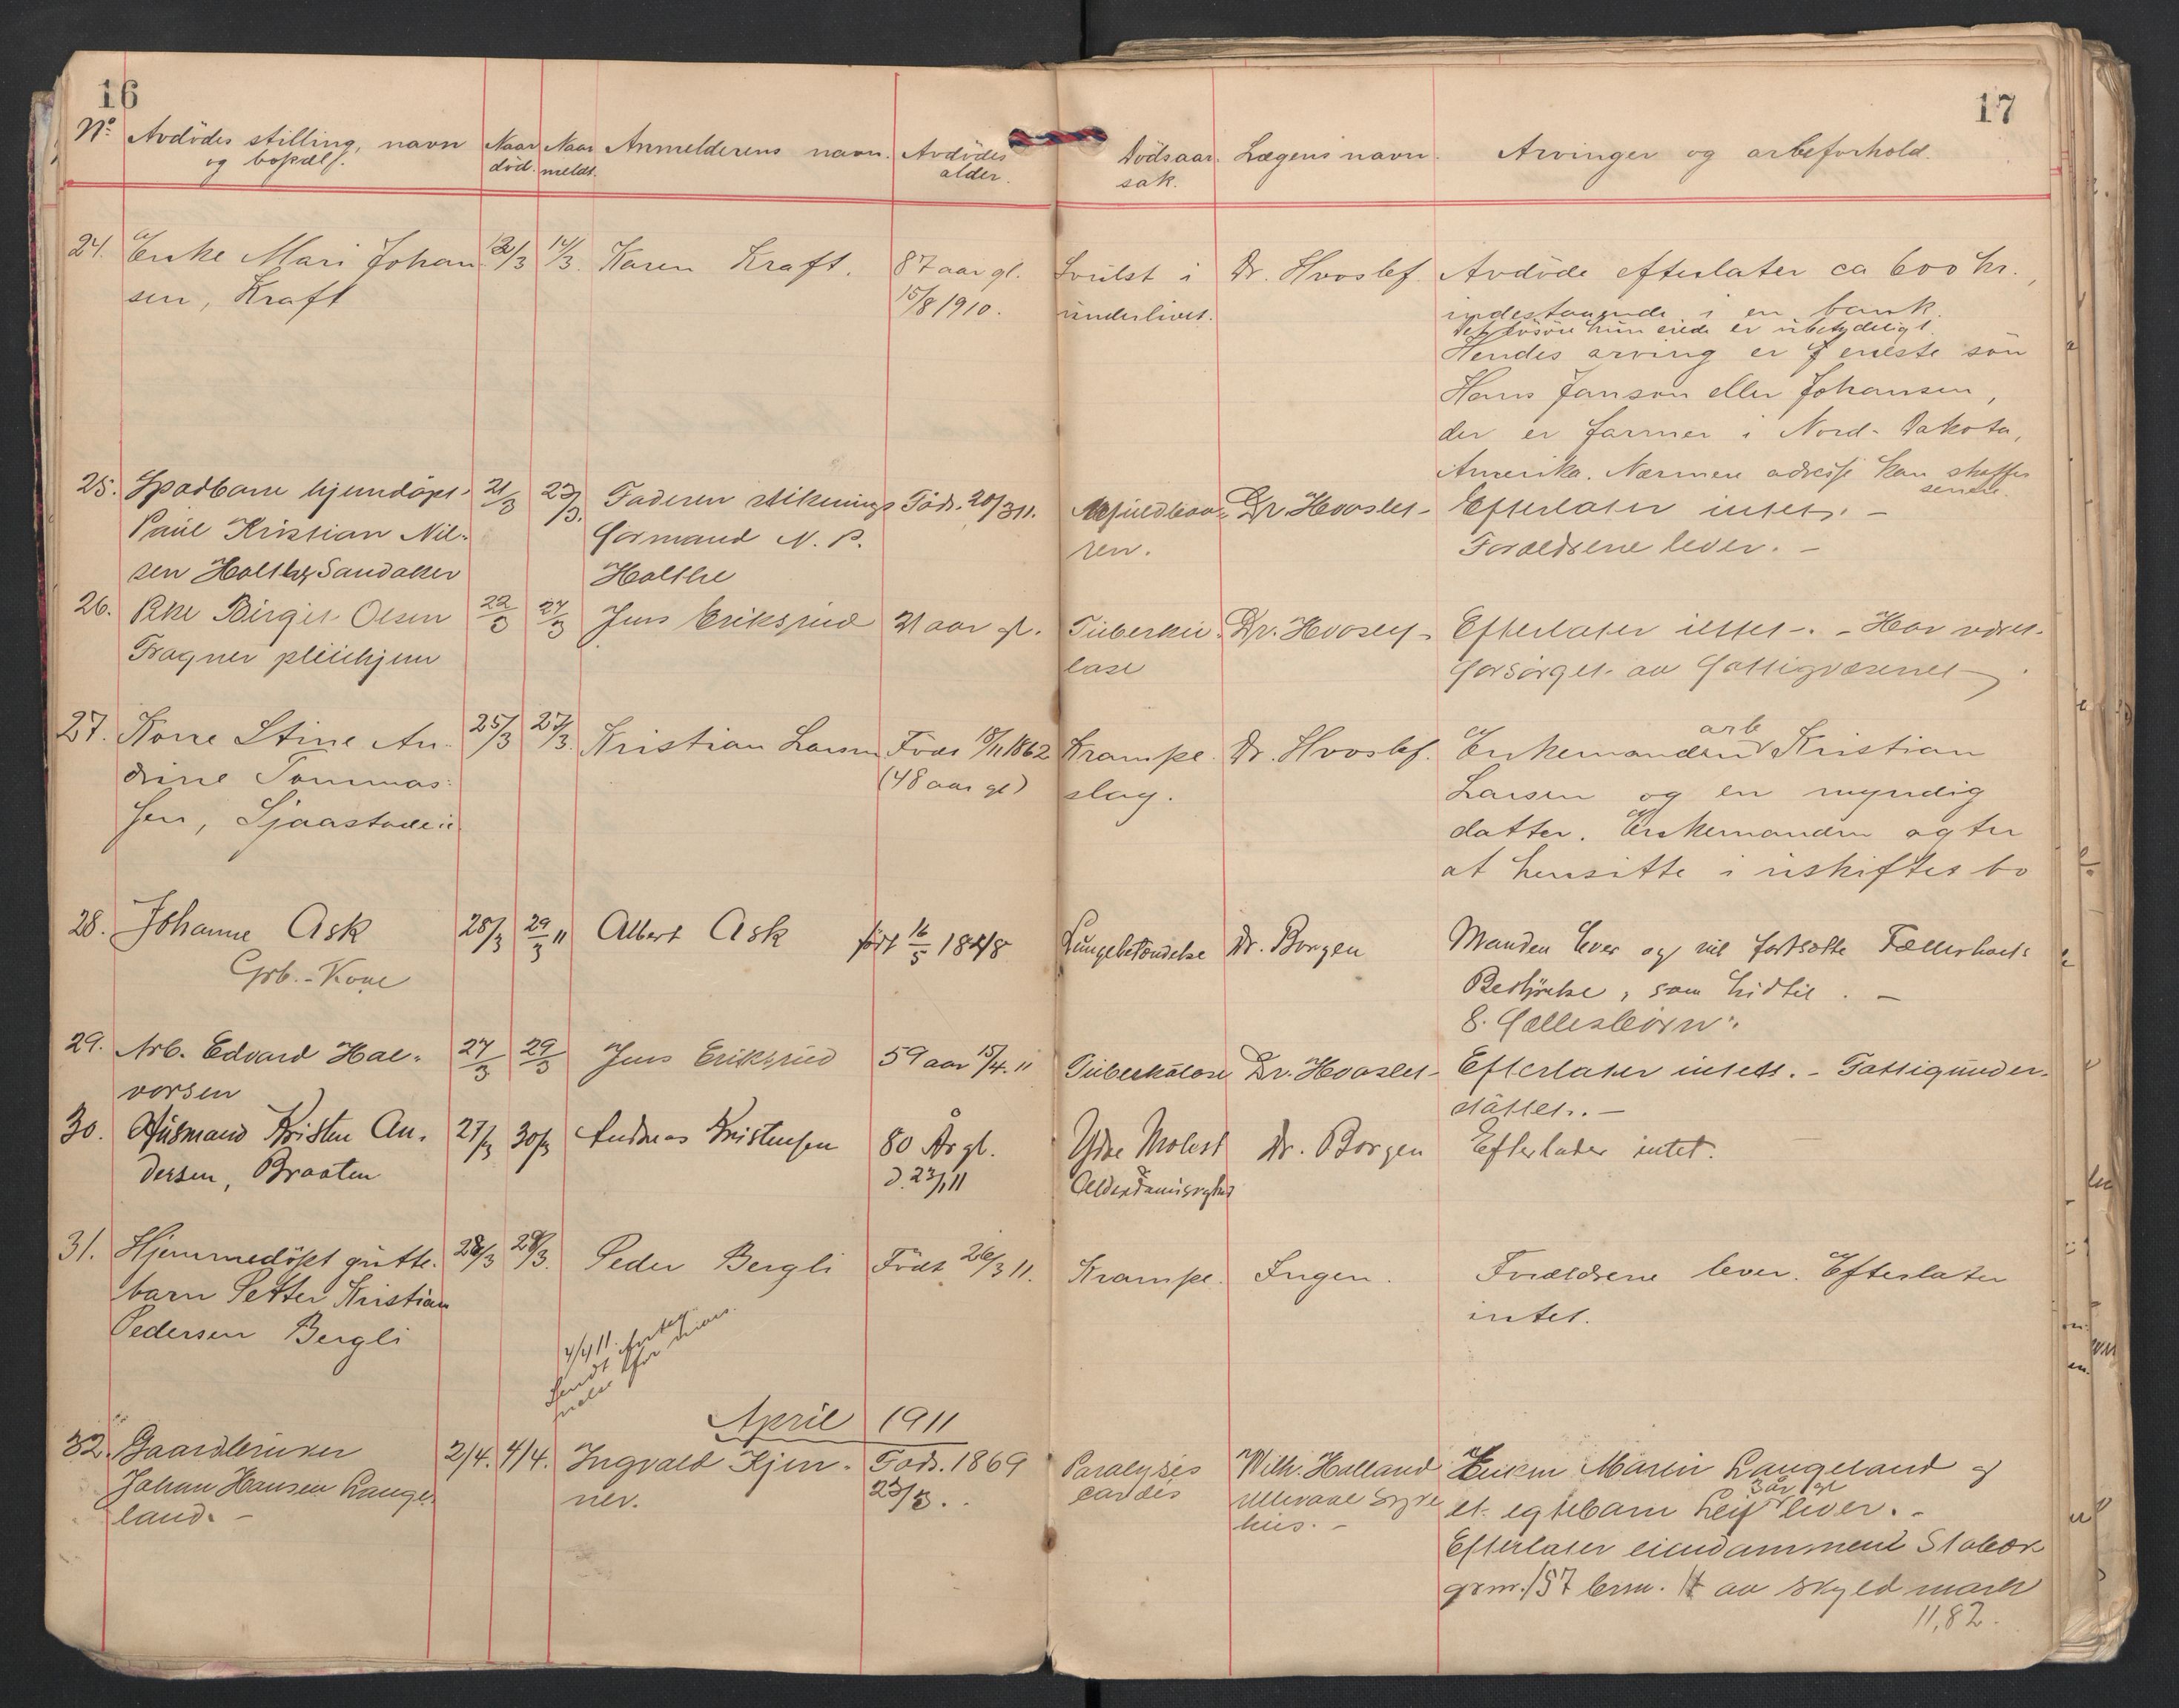 16
17
No Avdödes stilling, navn og bopæl. Naar död. Naar meldt. Anmelderens navn. Avdödes alder. Dödsaar sak. Lægens navn. Arvinger og arbeforhold.
24. Enke Mari Johan 12/3 14/3 Karen Kraft. 87 aar gl. Svulst i Dr. Hvoslef. Avdöde efterlater ca 600 kr.,
sen, Kraft 15/8 1910. underlivet. indestaaende i en bank.
Det lösöre hun eiede er ubetydeligt.
Hendes arving er eneste sön
Hans Janson eller Johansen,
der er farmer i Nord-Dakota,
Amerika. Nærmere adresse kan skaffes
senere.
25. Spædbarn hjemdöpt 21/3 23/3. Faderen stiknings Föd. 20/3 11. Dr Hvoslef Efterlater intet. -
Paul Kristian Nil- formand N. P. ren. Forældrene lever. -
sen Holthe, Sandaker Holthe
26. Pike Birgit Olsen 22/3 24/3 Jens Eriksrud 21 aar gl. Tuberku- Dr. Hvoslef Efterlater intet. - Har været
Fragner pleiehjem lose forsörget av fattigvæsenet
27. Kone Stine An- 25/3 27/3. Kristian Larsen Född 18/11 1862 Krampe Dr. Hvoslef. Enkemanden arb Kristian
drine Tommas- (48 aar gl) slag. Larsen og en myndig
sen, Sjaastad datter. Enkemanden agter
at hensitte i uskiftet bo
28. Johanne Ask 28/3 29/3 11 Albert Ask född 16/5 1848 Lungebetændelse Dr. Borgen Manden lever og vil fortsætte Fællesboets
Arb.-Kone Bestyrelse, som hidtil. -
8. Fællesbörn.
29. Arb. Edvard Hal- 27/3 29/3 Jens Eriksrud 59 aar 15/4. 11 Tuberkulose Dr. Hvoslef Efterlater intet. - Fattigunder-
vorsen stöttet. -
30. Husmand Kristen An- 27/3 30/3 Andreas Kristensen 80 År gl. Ydre Molest Dr. Borgen Efterlader intet.
dersen, Braaten d. 23/1 11
31. Hjemmedöpt gutte- 28/3 29/3. Peder Bergli Född 26/3 11. Krampe. Ingen. Forældrene lever. Efterlater
barn Petter Kristian intet.
Pedersen Bergli
4/4 11.
sendt
April 1911
32. Gaardbruker 2/4. 4/4. Ingvald Kjen- Född. 1869 Paralysis Wilh. Holland Enken Maren Langeland og
Johan Hansen Lange- ner. 23/3. cordis Ullevaal Syke et egtebarn Leif 3 år gl lever. -
land. - hus. - Efterlater eiendommene Stabæk
grnr. 157 brn. 11 av skyld mark
11,82.